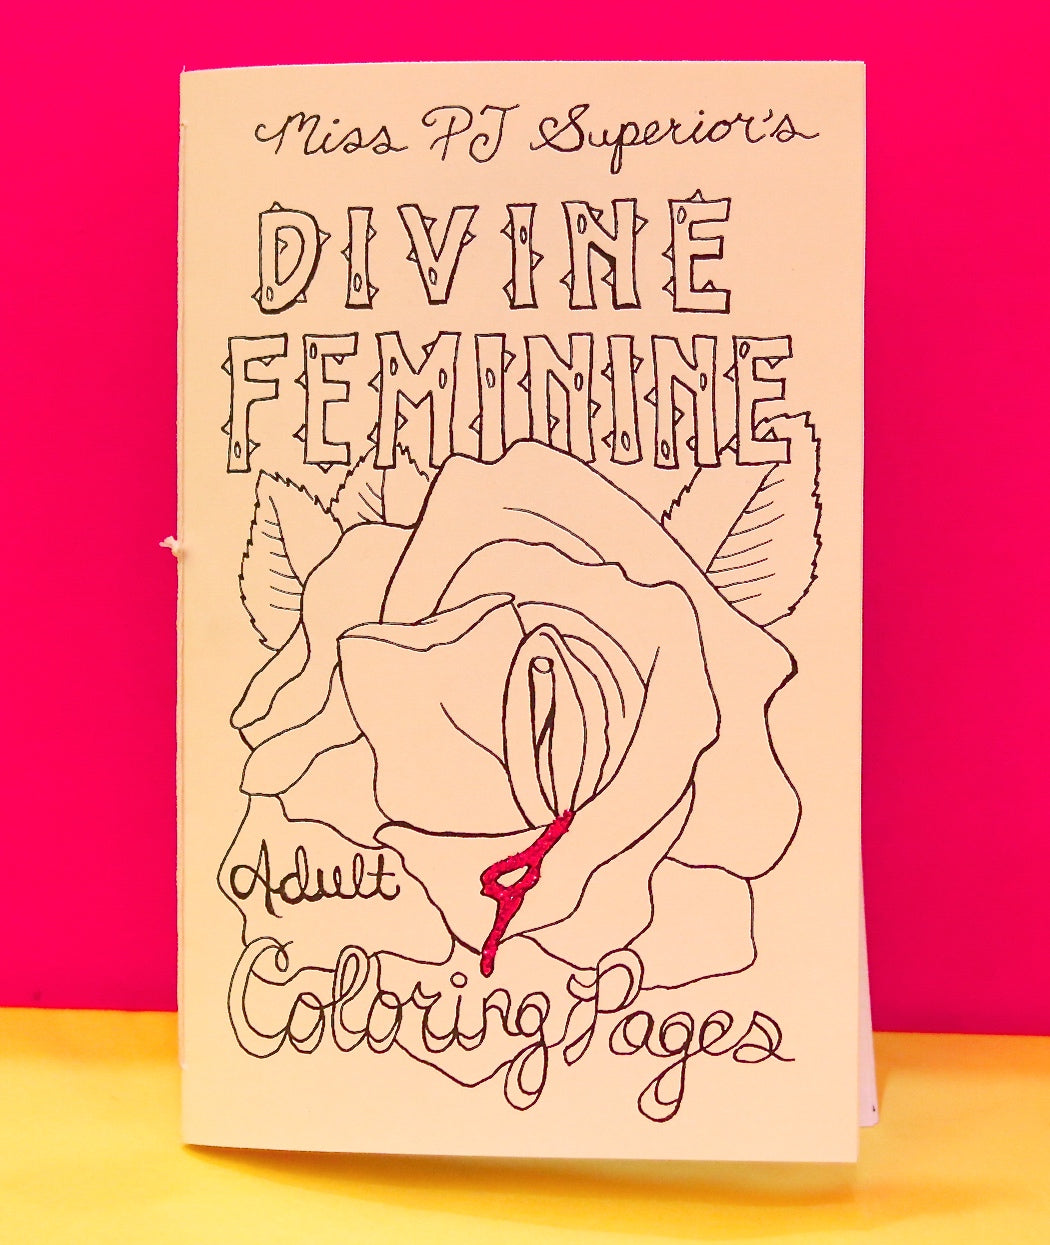 Miss PJ Superior's
DIVINE
FEMININE
Adult
Coloring Pages